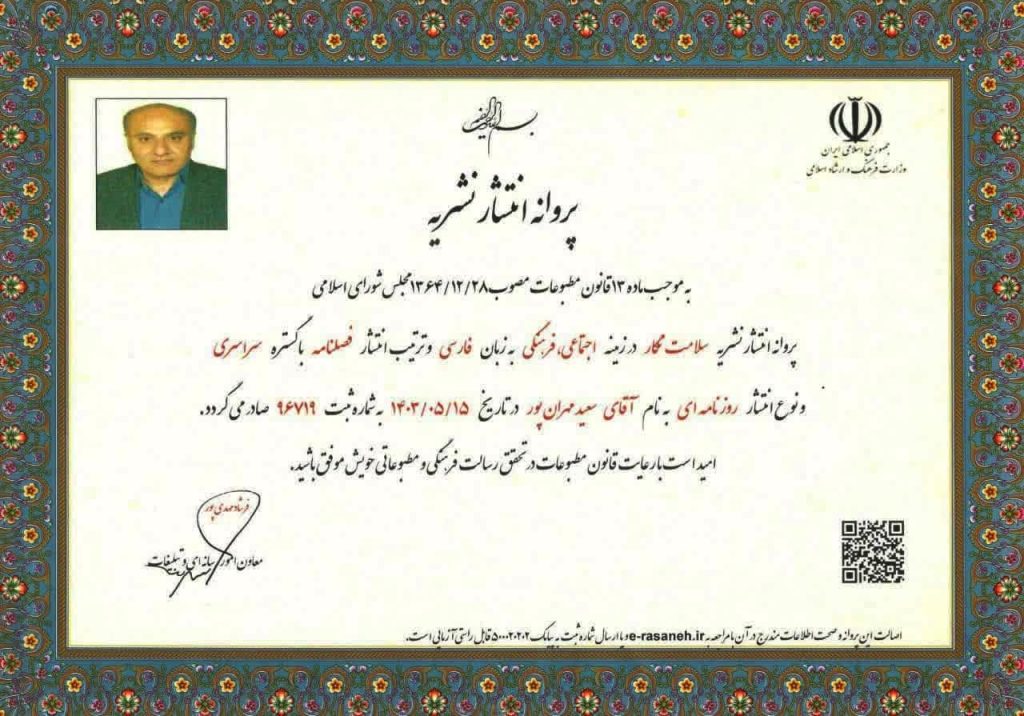 جمهوری اسلامی ایران
وزارت فرهنگ و ارشاد اسلامی
پروانه انتشار نشریه
به موجب ماده ۱۳ قانون مطبوعات مصوب ۱۳۶۴/۱۲/۲۸ مجلس شورای اسلامی
پروانه انتشار نشریه سلامت نگار در زمینه اجتماعی، فرهنگی به زبان فارسی و ترتیب انتشار فصلنامه با گستره سراسری
و نوع انتشار روزنامه ای به نام آقای سعید مهران پور در تاریخ ۱۴۰۳/۰۵/۱۵ به شماره ثبت ۹۶۷۱۹ صادر می گردد.
امید است با رعایت قانون مطبوعات در تحقق رسالت فرهنگی و مطبوعاتی خویش موفق باشید.
فرشاد مهدی پور
معاون امور رسانه ای و تبلیغات
اصالت این پروانه و صحت اطلاعات مندرج در آن با مراجعه به e-rasaneh.ir و یا ارسال شماره ثبت به پیامک ۵۰۰۰۲۰۲۰۲ قابل راستی آزمایی است.